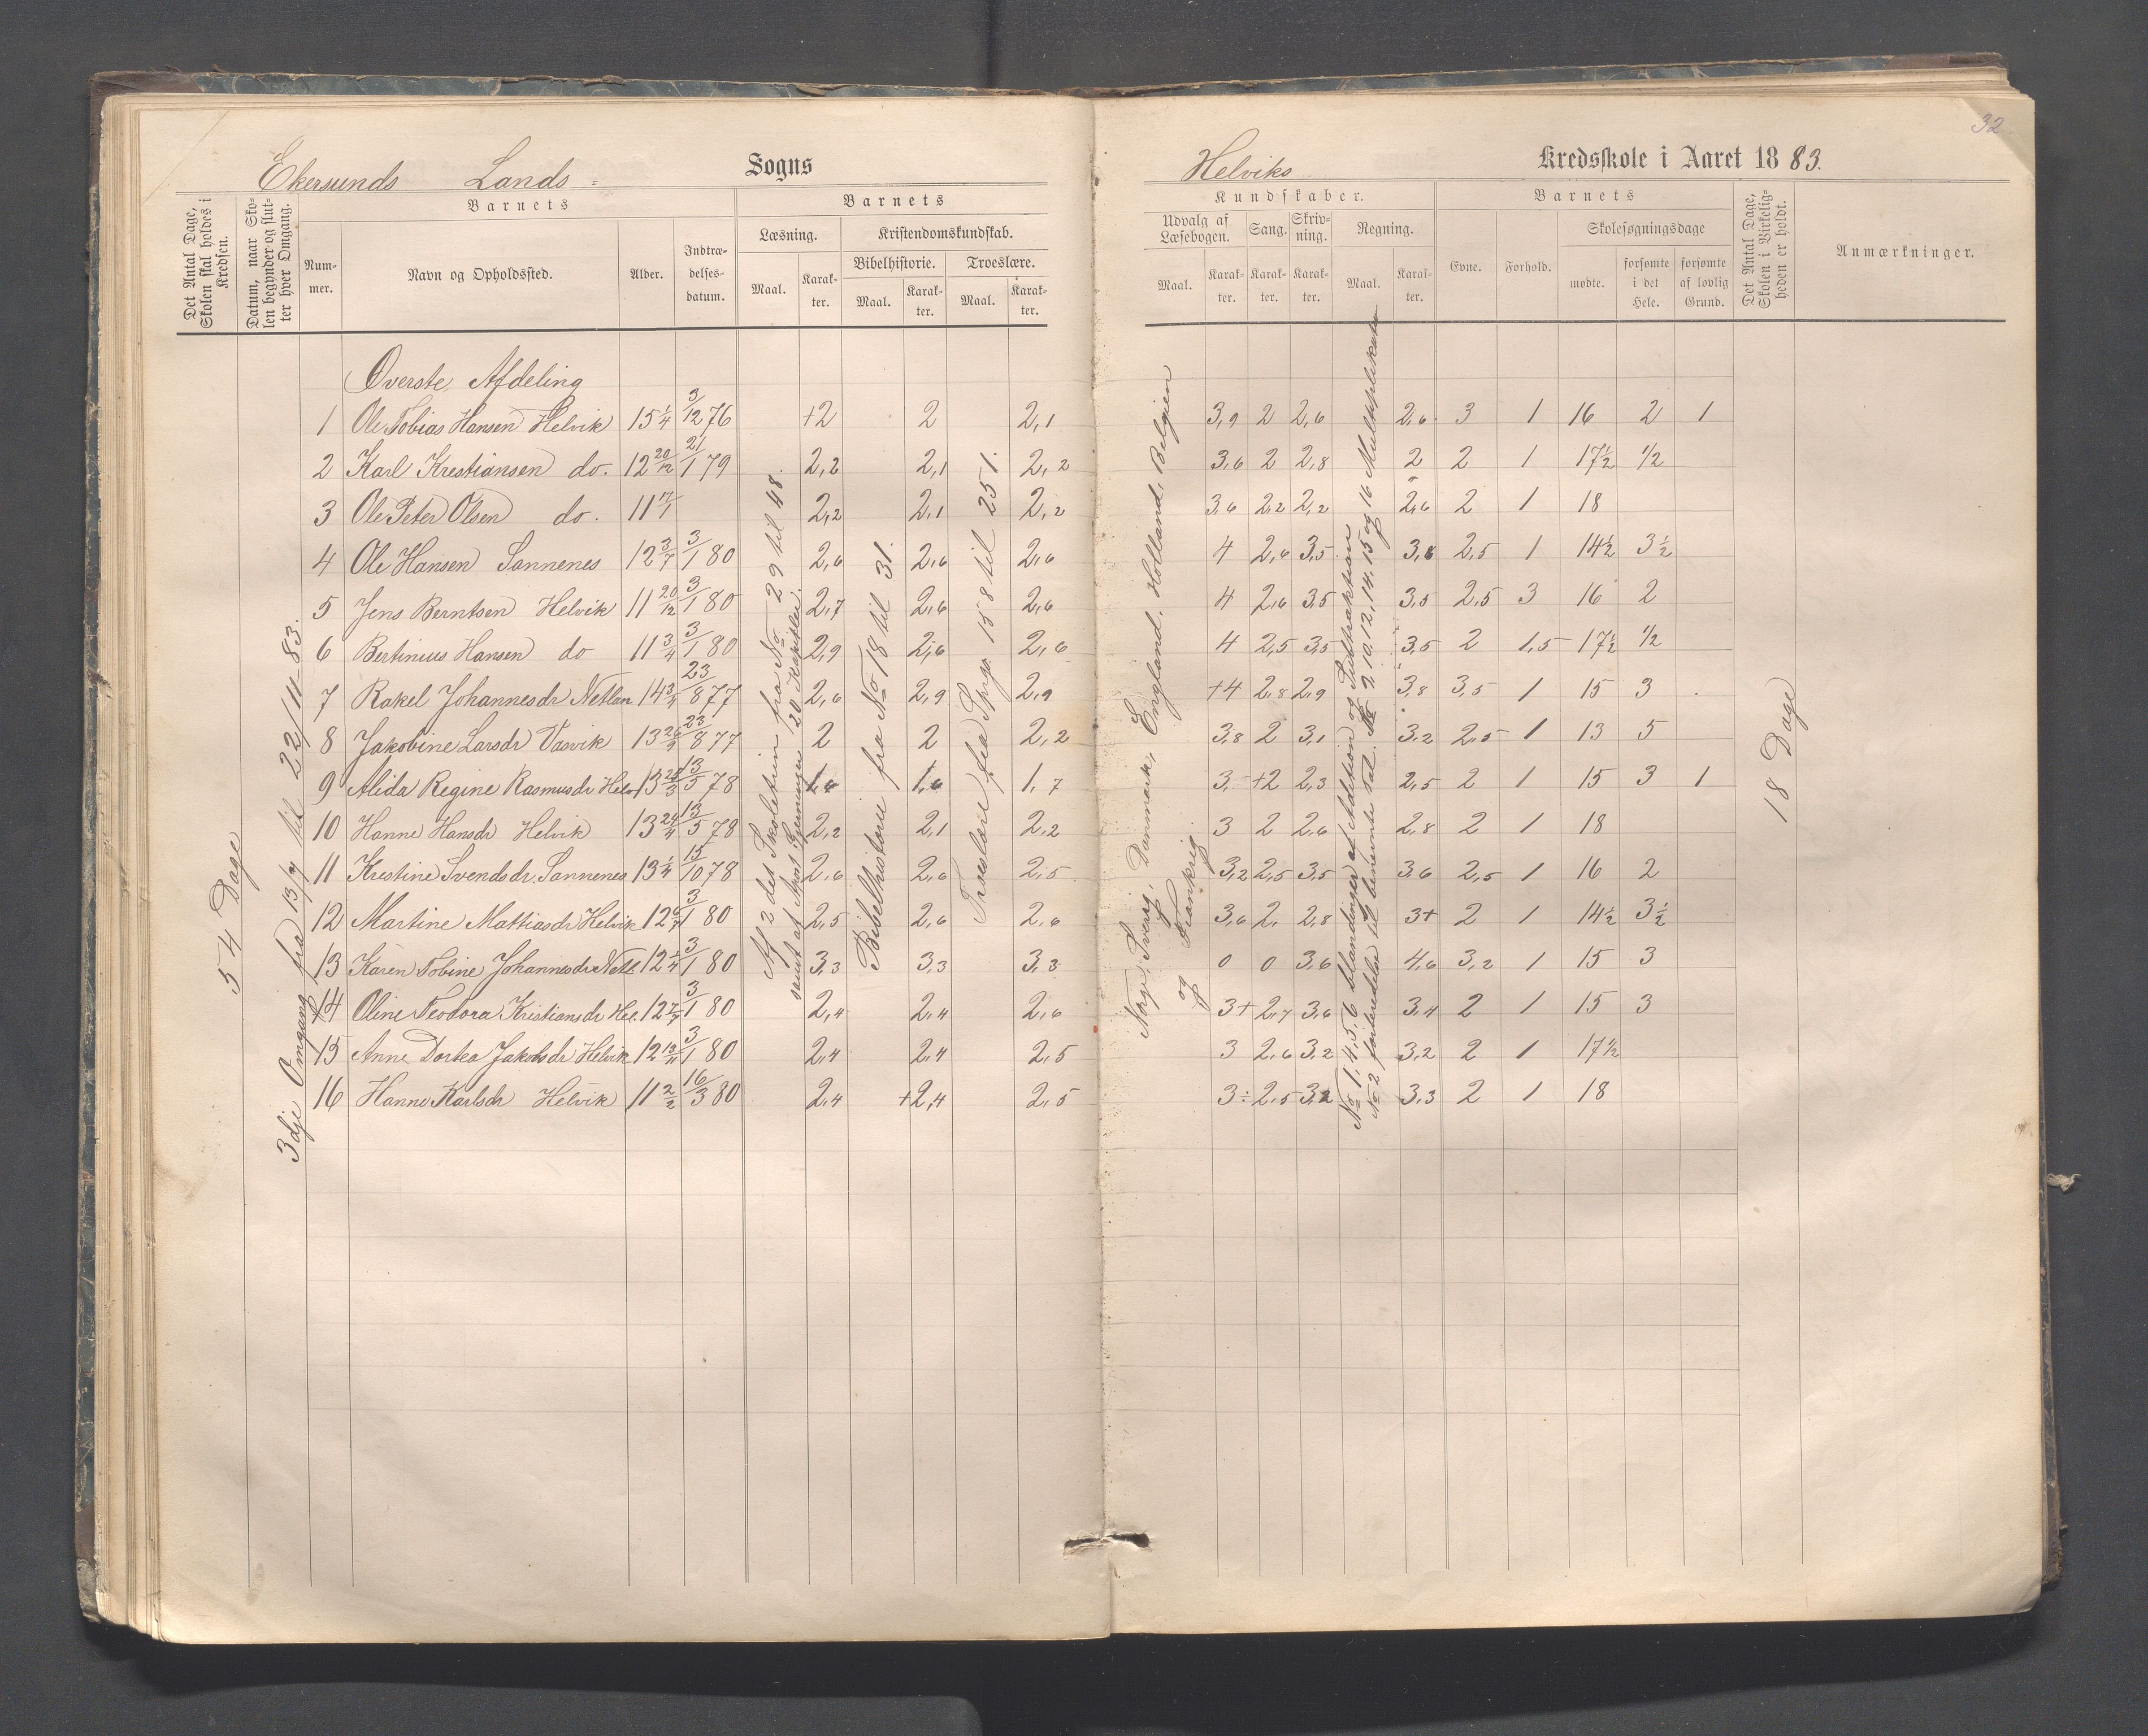 32
Ekersunds Lands- Sogns
Helviks Kredsskole i Aaret 1883.
Det Antal Dage, Skolen skal holdes i Kredsen.
Datum, naar Skolen begynder og slutter hver Omgang.
Barnets
Nummer.
Navn og Opholdssted.
Alder.
Indtrædelsesdatum.
Barnets
Læsning.
Maal.
Karakter.
Kristendomskundskab.
Bibelhistorie.
Maal.
Karakter.
Troeslære.
Maal.
Karakter.
Kundskaber.
Udvalg af Læsebogen.
Maal.
Karakter.
Sang.
Karakter.
Skrivning.
Karakter.
Regning.
Maal.
Karakter.
Barnets
Evne.
Forhold.
Skolesøgningsdage
mødte.
forsømte i det Hele.
forsømte af lovlig Grund.
Det Antal Dage, Skolen i Virkeligheden er holdt.
Anmærkninger.
54 Dage
3dje Omgang fra 13/7 til 22/11-83.
Af 2 det Skoletrin fra No. 29 til 48.
samt af Apost Gjerninger 20 Kapitler.
Bibelhistorie fra No 18 til 31.
Troeslære fra Spgs. 158 til 251.
Norge, Sverig, Danmark, England, Holland, Belgien
og Frankrig
No 1, 4, 5, 6 blandinger af Addition og Subtraktion
No 2 fortsredeler til benevnte Tal. No 9, 10, 12, 14, 15 og 16 Multiplikation
18 Dage
Øverste Afdeling
1 Ole Tobias Hansen Helvik 15 1/4 3/12 76 +2 2 2,1 3,9 2 2,6 2,6 3 1 16 2 1
2 Karl Krestiansen do. 12 20/12 21/1 79 2,2 2,1 2,2 3,6 2 2,8 2 2 1 17½ 1/2
3 Ole Peter Olsen do. 11 17/1 2,2 2,1 2,2 3,6 2,2 2,2 2,6 2 1 18
4 Ole Hansen Sannenes 12 3/7 3/1 80 2,6 2,6 2,6 4 2,6 3,5 3,8 2,5 1 14½ 3½
5 Jens Berntsen Helvik 11 20/12 3/1 80 2,7 2,6 2,6 4 2,6 3,5 3,5 2,5 3 16 2
6 Bertinius Hansen do 11 3/4 3/1 80 2,9 2,6 2,6 4 2,5 3,5 3,5 2 1,5 17½ 1/2
7 Rakel Johannesdr Netlan 14 3/4 23/8 77 2,6 2,9 2,9 +4 2,8 2,9 3,8 3,5 1 15 3
8 Jakobine Larsdr Vasvik 13 26/2 23/8 77 2 2 2,2 3,8 2 3,1 3,2 2,5 1 13 5
9 Alida Regine Rasmusdr Helv 13 28/3 13/5 78 1,6 1,6 1,7 3, +2 2,3 2,5 2 1 15 3 1
10 Hanne Hansdr Helvik 13 24/4 13/5 78 2,2 2,1 2,2 3 2 2,6 2,8 2 1 18
11 Krestine Svendsdr. Sannenes 13 1/4 15/10 78 2,6 2,6 2,5 3,2 2,5 3,5 3,6 2,5 1 16 2
12 Martine Mattiasdr Helvik 12 6/7 3/1 80 2,5 2,6 2,6 3,6 2, 2,8 3+ 2 1 14½ 3½
13 Karen Tobine Johannesdr Netl 12 1/4 3/1 80 3,3 3,3 3,3 0 0 3,6 4,6 3,2 1 15 3
14 Oline Teodora Kristiansdr Hel. 12 7/7 3/1 80 2,4 2,4 2,6 3+ 2,7 3,6 3,4 2 1 15 3
15 Anne Dortea Jakobsdr Helvik 12 13/11 3/1 80 2,4 2,4 2,5 3 2,6 3,2 3,2 2 1 17½
16 Hanne Karlsdr Helvik 11 2/2 16/3 80 2,4 +2,4 2,5 3÷ 2,5 3,2 3,3 2 1 18